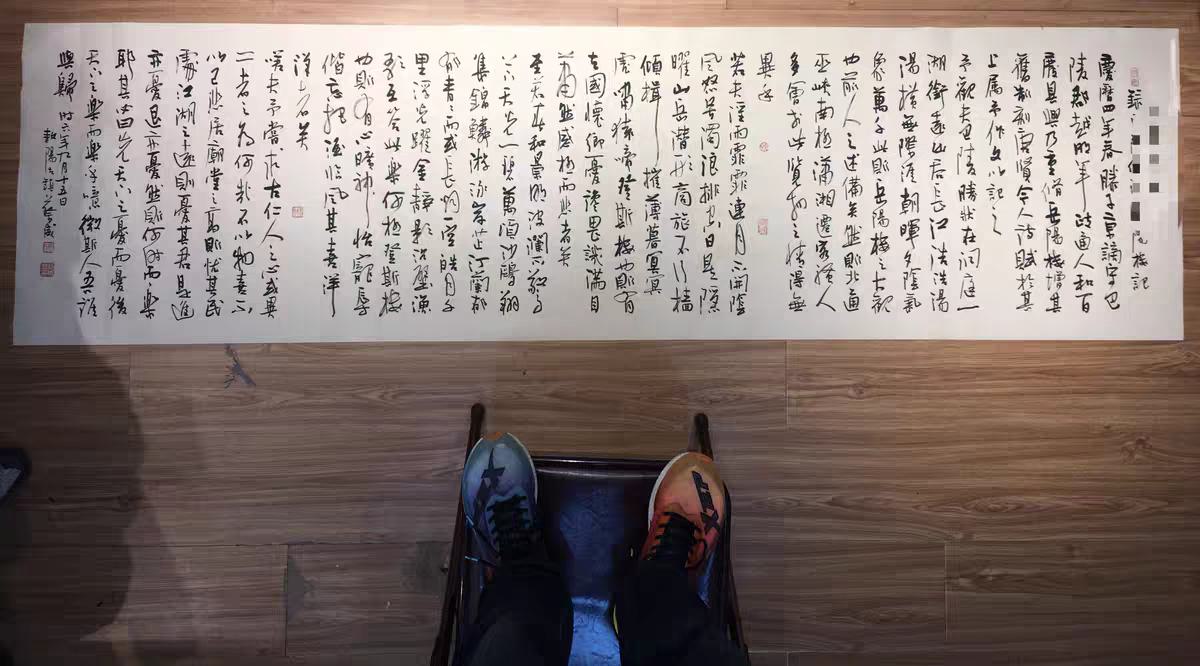 陽樓記
慶曆四年春滕子京謫守巴
陵郡越明年政通人和百
廢具興乃重修岳陽樓增其
舊制刻唐賢今人詩賦於其
上屬予作文以記之
予觀夫巴陵勝狀在洞庭一
湖銜遠山吞長江浩浩湯
湯橫無際涯朝暉夕陰氣
象萬千此則岳陽樓之大觀
也前人之述備矣然則北通
巫峽南極瀟湘遷客騷人
多會於此覽物之情得無
異乎
若夫淫雨霏霏連月不開陰
風怒號濁浪排空日星隱
曜山岳潛形商旅不行檣
傾楫摧薄暮冥冥
虎嘯猿啼登斯樓也則有
去國懷鄉憂讒畏譏滿目
蕭然感極而悲者矣
至若春和景明波瀾不驚上
下天光一碧萬頃沙鷗翔
集錦鱗游泳岸芷汀蘭郁
郁青青而或長煙一空皓月千
里浮光躍金靜影沉璧漁
歌互答此樂何極登斯樓
也則有心曠神怡寵辱
偕忘把酒臨風其喜洋
洋者矣
嗟夫予嘗求古仁人之心或異
二者之為何哉不以物喜不
以己悲居廟堂之高則憂其民
處江湖之遠則憂其君是進
亦憂退亦憂然則何時而樂
耶其必曰先天下之憂而憂後
天下之樂而樂乎噫微斯人吾誰
與歸 時六年九月十五日